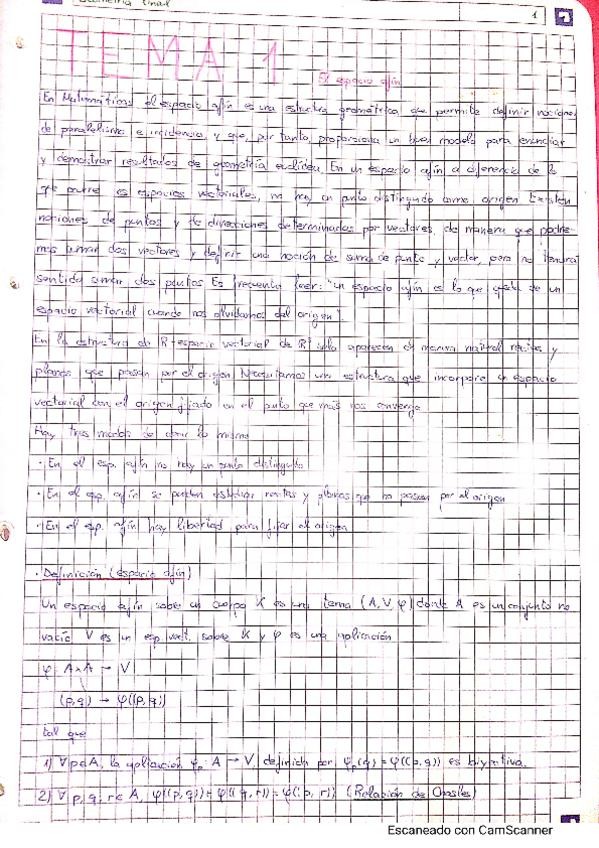 Geometría lineal
1
TEMA 1
El espacio afín
En Matemáticas el espacio afín es una estructura geométrica que permite definir nociones
de paralelismo e incidencia y que, por tanto, proporciona un buen modelo para enunciar
y demostrar resultados de geometría euclídea. En un espacio afín a diferencia de lo
que ocurre es espacios vectoriales, no hay un punto distinguido como origen Existen
nociones de puntos y de direcciones determinadas por vectores, de manera que podre-
mos sumar dos vectores y definir una noción de suma de punto y vector, pero no tendrá
sentido sumar dos puntos Es frecuente leer: "un espacio afín es lo que queda de un
espacio vectorial cuando nos olvidamos del origen"
En la estructura de R-espacio vectorial de R³ solo aparecen de manera natural rectas y
planos que pasan por el origen Necesitamos una estructura que incorpore un espacio
vectorial con el origen fijado en el punto que más nos convenga
Hay tres modos de decir lo mismo
· En el esp. afín no hay un punto distinguido
· En el esp. afín se pueden estudiar rectas y planos que no pasen por el origen
· En el esp. afín hay libertad para fijar el origen
· Definición (espacio afín)
Un espacio afín sobre un cuerpo K es una terna (A, V, φ) donde A es un conjunto no
vacío V es un esp. vect. sobre K y φ es una aplicación
φ: A×A → V
(p,q) → φ((p,q))
tal que
1) ∀p∈A, la aplicación φp: A → V, definida por φp(q) = φ((p,q)) es biyectiva.
2) ∀p,q,r∈A, φ((p,q)) + φ((q,r)) = φ((p,r)) (Relación de Chasles)
Escaneado con CamScanner